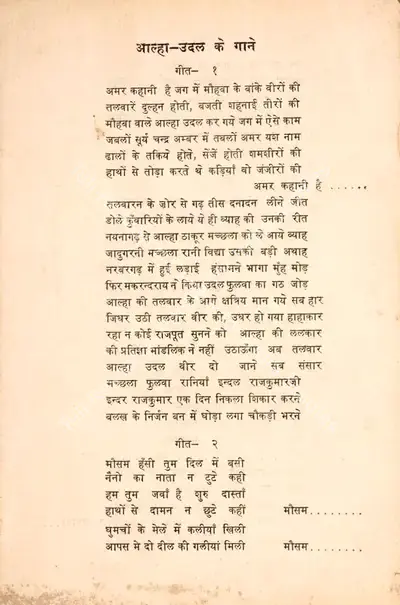 आल्हा-उदल के गाने
गीत- १
अमर कहानी है जग में मौहबा के बांके वीरों की
तलवारें दुल्हन होती, बजती शहनाई तीरों की
मौहबा वाले आल्हा उदल कर गये जग में ऐसे काम
जबलों सूर्य चन्द्र अम्बर में तबलों अमर यश नाम
ढालों के तकिये होते, सेजें होती शमशीरों की
हाथों से तोड़ा करते थे कड़ियाँ वो जंजीरों की
अमर कहानी है ......
तलवारन के जोर से गढ़ तीस दनादन लीने जीत
डोले कुँवारियों के लाये ये ही ब्याह की उनकी रीत
नयनागढ़ से आल्हा ठाकुर मच्छला को ले आये ब्याह
जादुगरनी मच्छला रानी विद्या उसकी बड़ी अथाह
नरबरगढ़ में हुई लड़ाई हंसामने भागा मुँह मोड़
फिर मकरन्दराय ने किया उदल फुलवा का गठ जोड़
आल्हा की तलवार के आगे क्षत्रिय मान गये सब हार
जिधर उठी तलवार वीर की, उधर हो गया हाहाकार
रहा न कोई राजपूत सुनने को आल्हा की ललकार
की प्रतिज्ञा मांडलिक ने नहीं उठाऊँगा अब तलवार
आल्हा उदल वीर दो जाने सब संसार
मच्छला फुलवा रानियाँ इन्दल राजकुमारजी
इन्दर राजकुमार एक दिन निकला शिकार करने
बलख के निर्जन बन में घोड़ा लगा चौकड़ी भरने
गीत- २
मौसम हँसी तुम दिल में बसी
नैनो का नाता न टुटे कही
हम तुम जवाँ है शुरु दास्ताँ
हाथों से दामन न छुटे कहीं मौसम........
घुमचों के मेले में कलीयाँ खिली
आपस मे दो दील की गलीयां मिली मौसम........